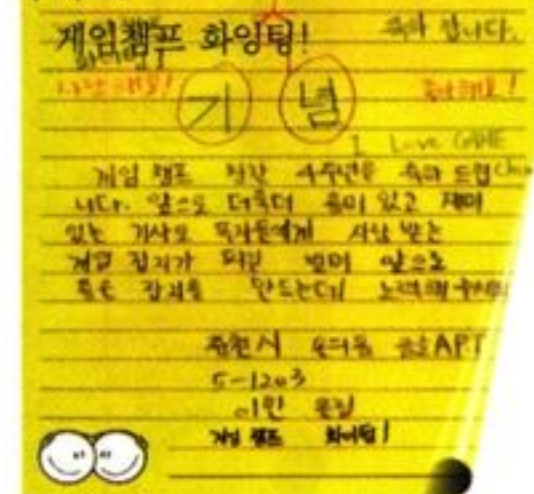 게임챔프 화잉팅!
축하 합니다.
사랑해요!
기 념
축하해요!
I Love GAME
게임 챔프 창간 4주년을 축하 드립
니다. 앞으로 더욱더 흥미 있고 재미
있는 기사로 독자들에게 사랑 받는
게임 잡지가 되길 빌며 앞으로
좋은 잡지를 만드는데 노력해주세요
춘천시 APT
5-1203
이민
게임 챔프 화이팅!